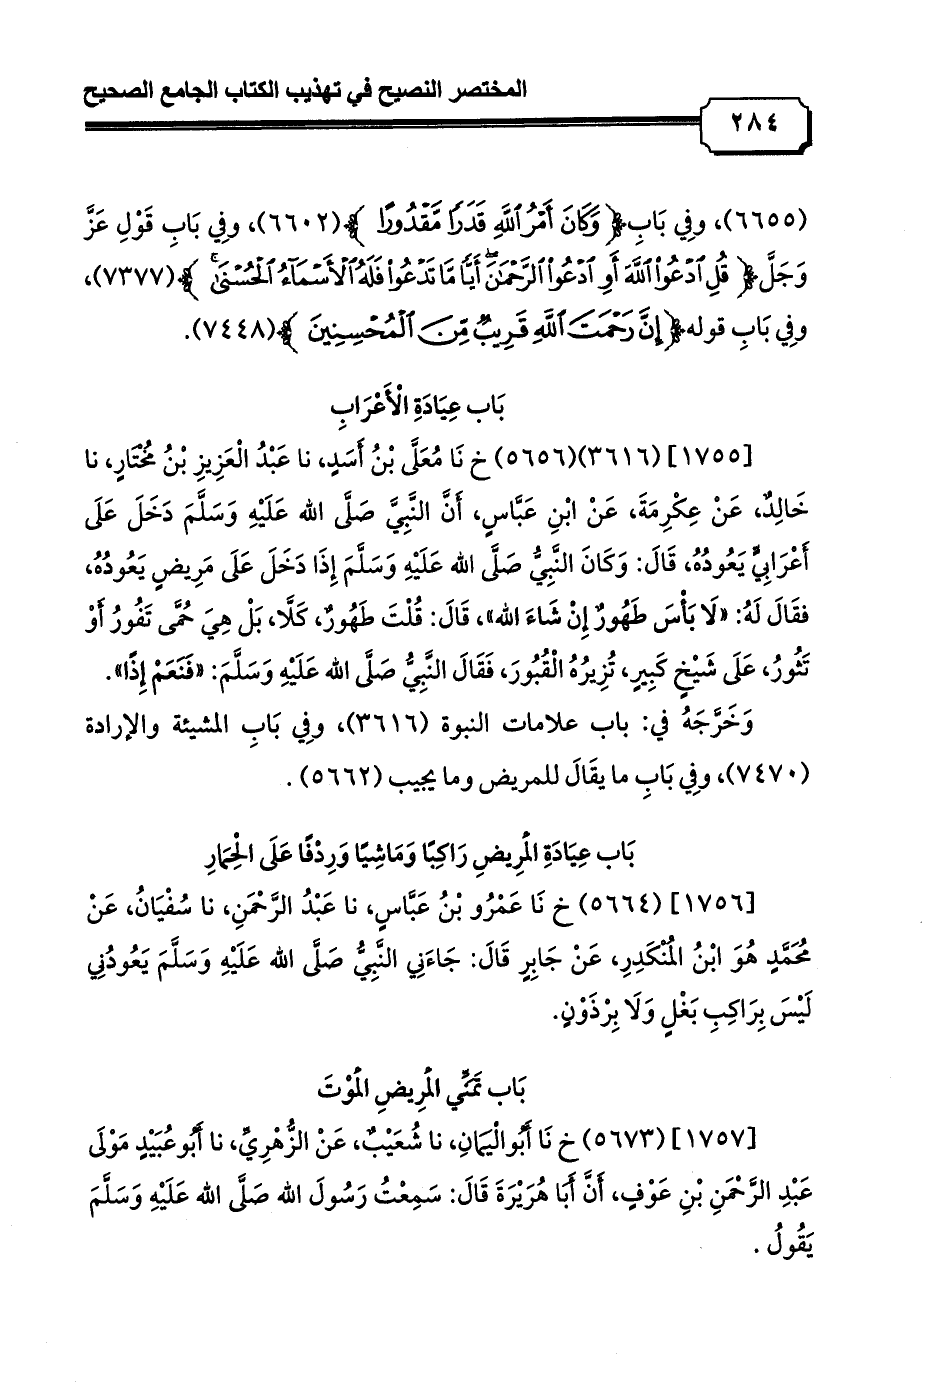 المختصر النصيح في تهذيب الكتاب الجامع الصحيح
٢٨٤
(٦٦٥٥)، وفِي بَابِ ﴿ وَكَانَ أَمْرُ ٱللَّهِ قَدَرٗا مَّقۡدُورًا ﴾(٦٦٠٢)، وفِي بَابِ قَوْلِ عَزَّ
وَجَلَّ ﴿ قُلِ ٱدۡعُواْ ٱللَّهَ أَوِ ٱدۡعُواْ ٱلرَّحۡمَٰنَۖ أَيّٗا مَّا تَدۡعُواْ فَلَهُ ٱلۡأَسۡمَآءُ ٱلۡحُسۡنَىٰۚ ﴾(٧٣٧٧)،
وفِي بَابِ قوله ﴿ إِنَّ رَحۡمَتَ ٱللَّهِ قَرِيبٞ مِّنَ ٱلۡمُحۡسِنِينَ ﴾(٧٤٤٨).
بَاب عِيَادَةِ الْأَعْرَابِ
[١٧٥٥] (٣٦١٦)(٥٦٥٦) خ نَا مُعَلَّى بْنُ أَسَدٍ، نا عَبْدُ الْعَزِيزِ بْنُ مُخْتَارٍ، نا
خَالِدٌ، عَنْ عِكْرِمَةَ، عَنْ ابْنِ عَبَّاسٍ، أَنَّ النَّبِيَّ صَلَّى الله عَلَيْهِ وَسَلَّمَ دَخَلَ عَلَى
أَعْرَابِيٍّ يَعُودُهُ، قَالَ: وَكَانَ النَّبِيُّ صَلَّى الله عَلَيْهِ وَسَلَّمَ إِذَا دَخَلَ عَلَى مَرِيضٍ يَعُودُهُ،
فقَالَ لَهُ: «لَا بَأْسَ طَهُورٌ إِنْ شَاءَ الله»، قَالَ: قُلْتَ طَهُورٌ، كَلَّا، بَلْ هِيَ حُمَّى تَفُورُ أَوْ
تَثُورُ، عَلَى شَيْخٍ كَبِيرٍ، تُزِيرُهُ الْقُبُورَ، فَقَالَ النَّبِيُّ صَلَّى الله عَلَيْهِ وَسَلَّمَ: «فَنَعَمْ إِذًا».
وَخَرَّجَهُ في: باب علامات النبوة (٣٦١٦)، وفِي بَابِ المشيئة والإرادة
(٧٤٧٠)، وفِي بَابِ ما يقَالَ للمريض وما يجيب (٥٦٦٢) .
بَاب عِيَادَةِ المْرِيضِ رَاكِبًا وَمَاشِيًا وَرِدْفًا عَلَى الْحِمَارِ
[١٧٥٦] (٥٦٦٤) خ نَا عَمْرُو بْنُ عَبَّاسٍ، نا عَبْدُ الرَّحْمَنِ، نا سُفْيَانُ، عَنْ
مُحَمَّدٍ هُوَ ابْنُ المُنْكَدِرِ، عَنْ جَابِرٍ قَالَ: جَاءَنِي النَّبِيُّ صَلَّى الله عَلَيْهِ وَسَلَّمَ يَعُودُنِي
لَيْسَ بِرَاكِبِ بَغْلٍ وَلَا بِرْذَوْنٍ.
بَاب تَمَنِّي المْرِيضِ المْوْتَ
[١٧٥٧] (٥٦٧٣) خ نَا أَبُو الْيَمَانِ، نا شُعَيْبٌ، عَنْ الزُّهْرِيِّ، نا أَبُو عُبَيْدٍ مَوْلَى
عَبْدِ الرَّحْمَنِ بْنِ عَوْفٍ، أَنَّ أَبَا هُرَيْرَةَ قَالَ: سَمِعْتُ رَسُولَ الله صَلَّى الله عَلَيْهِ وَسَلَّمَ
يَقُولُ .